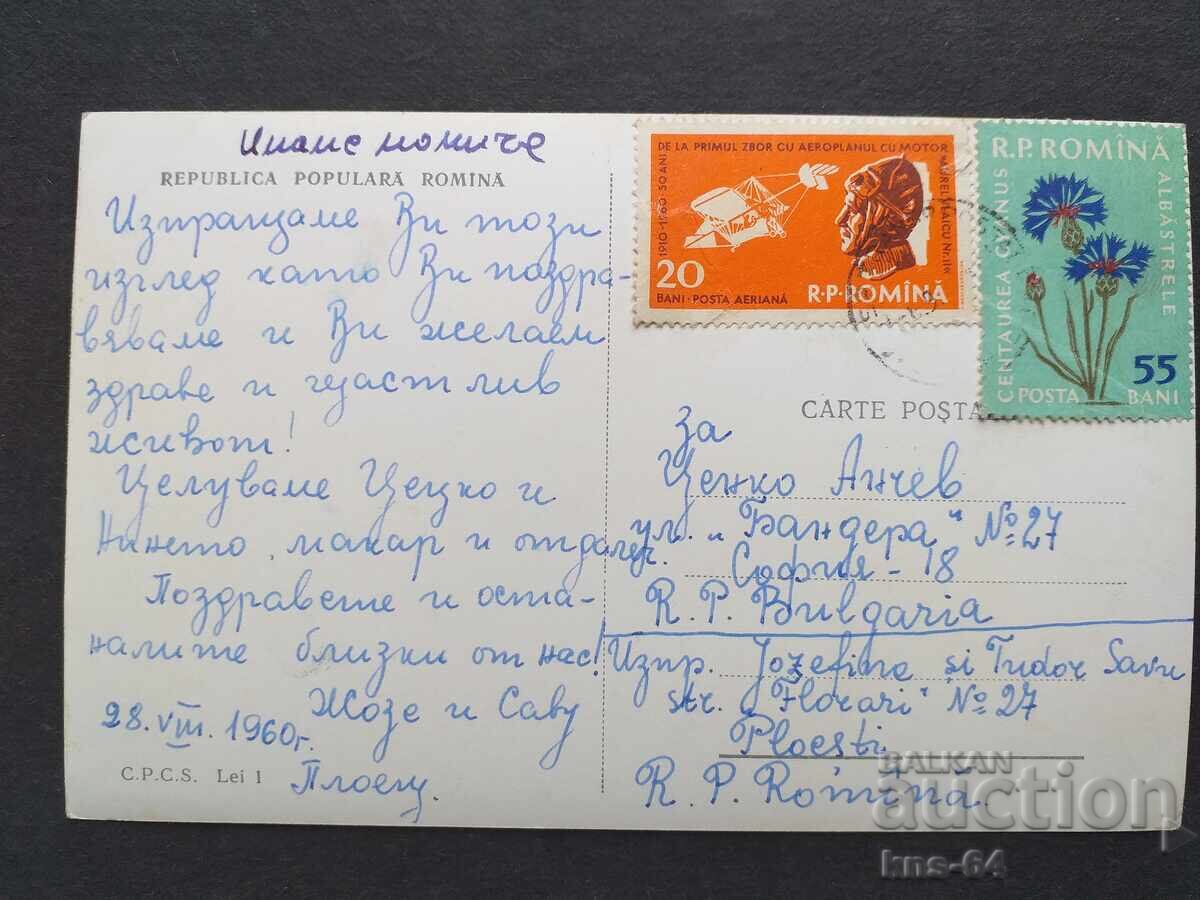 REPUBLICA POPULARĂ ROMÎNĂ
Изпращаме Ви този
изглед като Ви поздра-
вяваме и Ви желаем
здраве и щастлив
живот!
Целуваме Цецко и
Нинето, макар и отдалеч.
Поздравете и оста-
налите близки от нас!
Жозе и Саву
28.VIII.1960г.
Плоещ.
C.P.C.S. Lei 1
DE LA PRIMUL ZBOR CU AEROPLANUL CU MOTOR
AUREL VLAICU Nr.1
1910-1960·50 ANI
20
BANI·POSTA AERIANĂ
R·P·ROMÎNĂ
R.P. ROMÎNĂ
CENTAUREA CYANUS
ALBĂSTRELE
55
POSTA BANI
CARTE POȘTA
за
Ценко Анчев
ул. "Бандера" №27
София-18
R. P. Bulgaria
Изпр. Jozefina și Tudor Savu
str. "Florari" №27
Ploești
R. P. Romînă
BALKAN
auction
kns-64